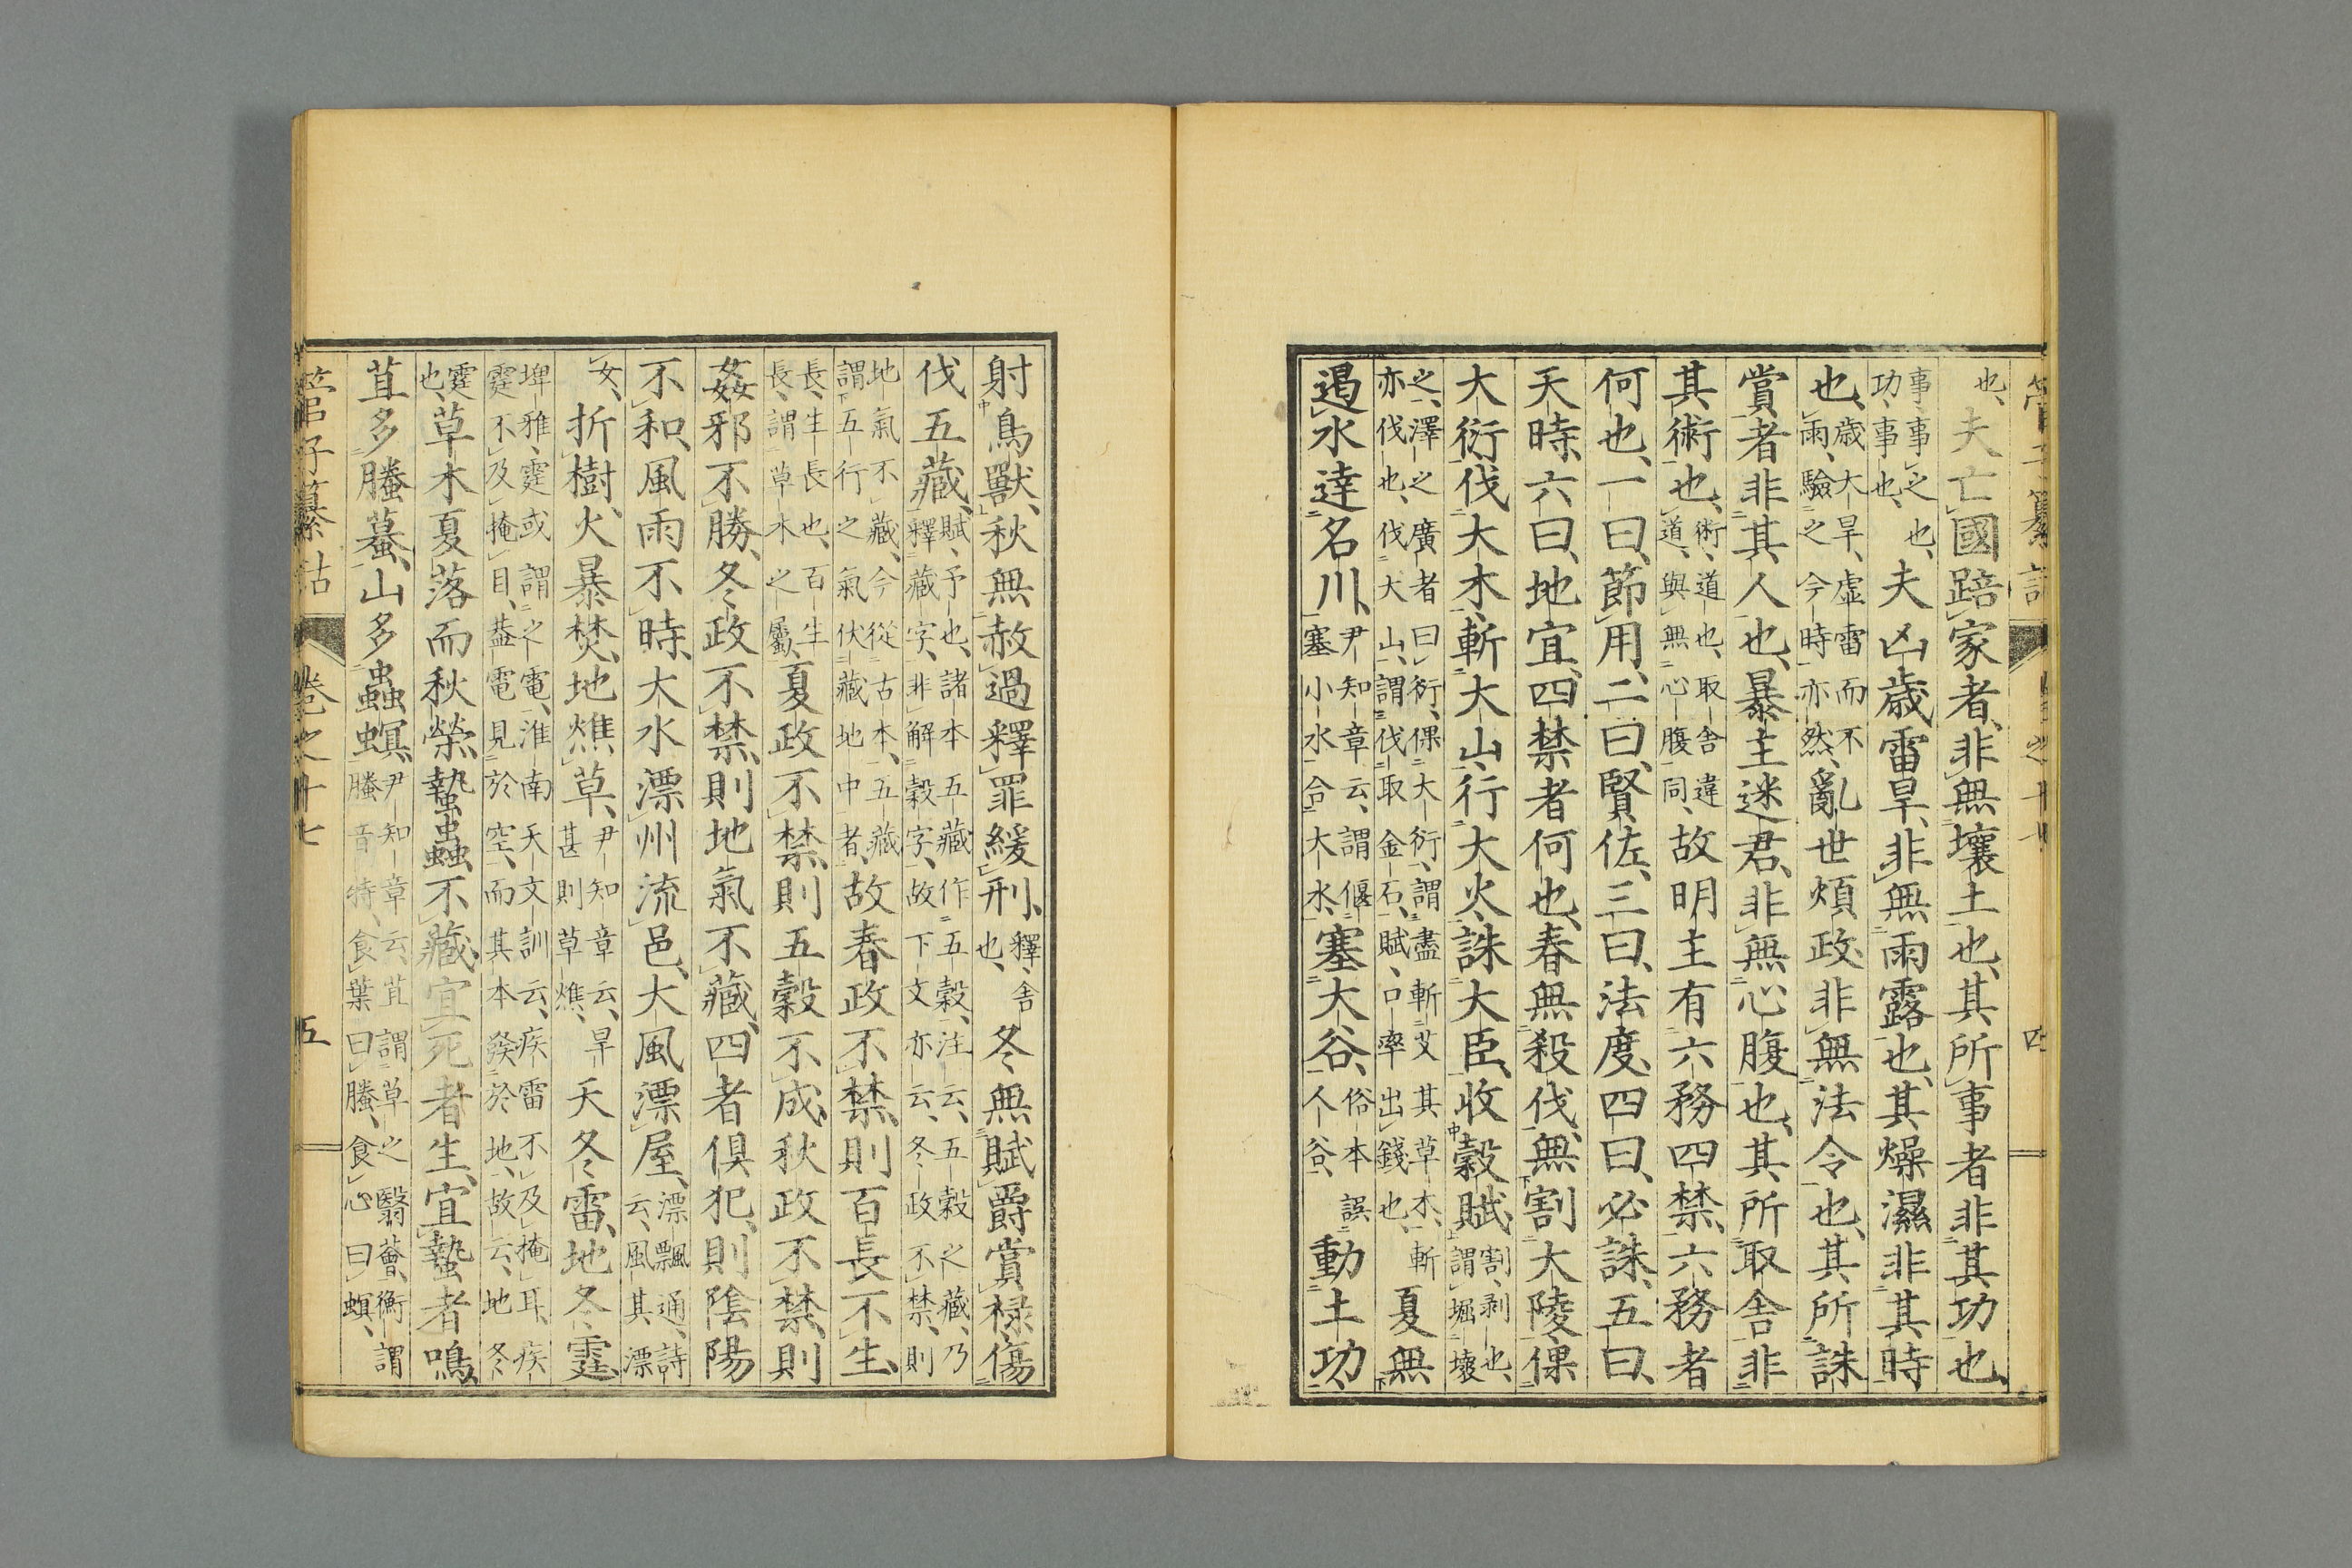 也、夫亡國踣家者、非無壤土也、其所事者非其功也、
事、事之也、功、事也、夫凶歲雷旱、非無雨露也、其燥濕非其時
也、歲大旱、虛雷而不雨、驗之今時亦然、亂世煩政、非無法令也、其所誅
賞者非其人也、暴主迷君、非無心腹也、其所取舍非
其術也、術、道也、取舍違道、與無心腹同、故明主有六務四禁、六務者
何也、一曰、節用、二曰、賢佐、三曰、法度、四曰、必誅、五曰、
天時、六曰、地宜、四禁者何也、春無殺伐、無割大陵、倮
大衍、伐大木、斬大山、行大火、誅大臣、收穀賦、割、剥也、謂堀壞
之、澤之廣者曰衍、倮大衍、謂盡斬艾其草木、斬亦伐也、伐大山、謂伐取金石、賦、口率出錢也、夏無
遏水達名川、尹知章云、謂偃塞小水合大水、塞大谷、俗本誤人谷、動土功、
射鳥獸、秋無赦過釋罪緩刑、釋、舍也、冬無賦爵賞祿、傷
伐五藏、賦、予也、諸本五藏作五穀、注云、五穀之藏、乃釋藏字、非解穀字、故下文亦云、冬政不禁、則
地氣不藏、今從古本、五藏謂五行之氣伏藏地中者、故春政不禁、則百長不生、
長、生長也、百生長、謂草木之屬、夏政不禁、則五穀不成、秋政不禁、則
姦邪不勝、冬政不禁、則地氣不藏、四者俱犯、則陰陽
不和、風雨不時、大水漂州流邑、大風漂屋、漂飄通、詩云、風其漂
女、折樹、火暴焚、地燋草、尹知章云、旱甚則草燋、天冬雷、地冬霆、
埤雅、霆或謂之電、淮南天文訓云、疾雷不及掩耳、疾霆不及掩目、葢電見於空、而其本發於地、故云、地冬
霆也、草木夏落而秋榮、蟄蟲不藏、宜死者生、宜蟄者鳴、
苴多螣蟇、山多蟲螟、尹知章云、苴謂草之翳薈、衡謂螣音特、食葉曰螣、食心曰螟、
管子纂詁 卷之十七 五